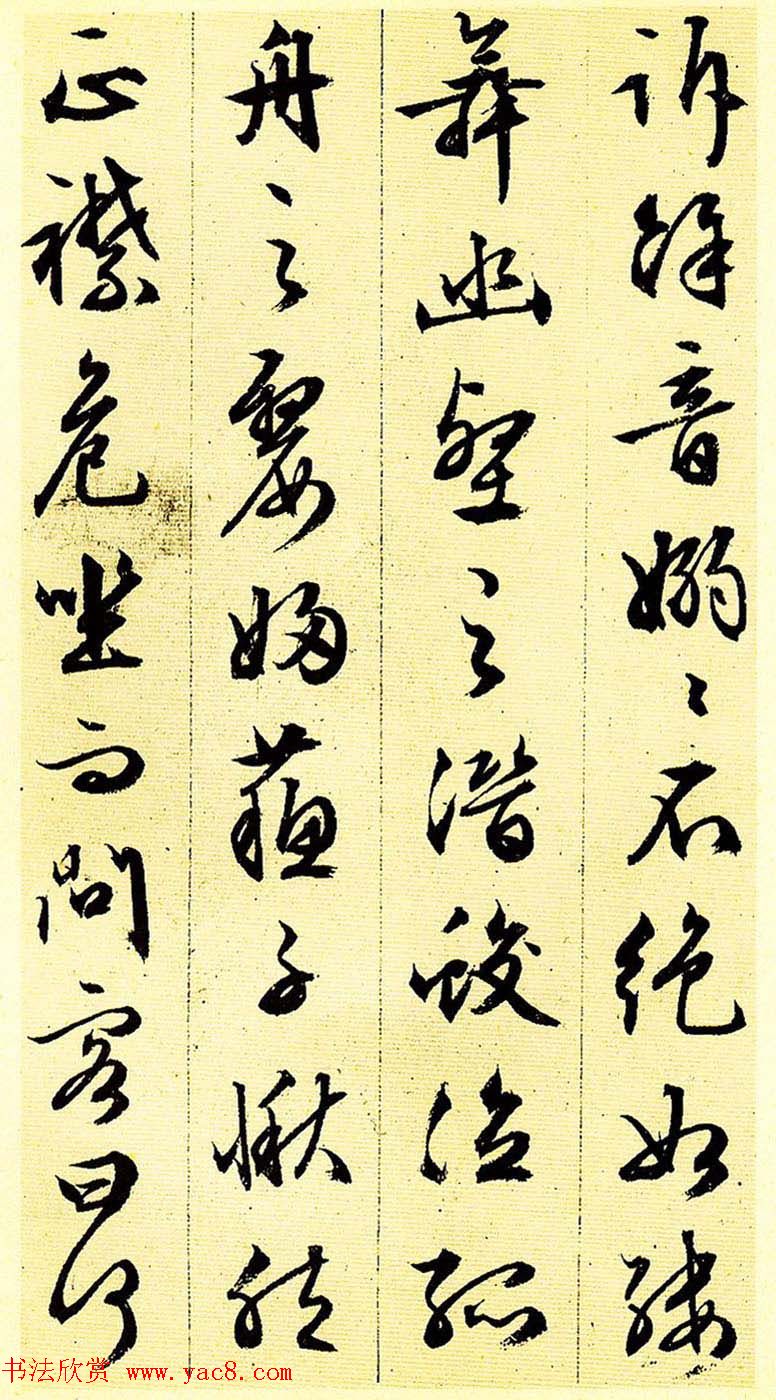 訴餘音嫋〻不絕如縷
舞幽壑之潛蛟泣孤
舟之嫠婦蘇子愀然
正襟危坐而問客曰何
书法欣赏 www.yac8.com